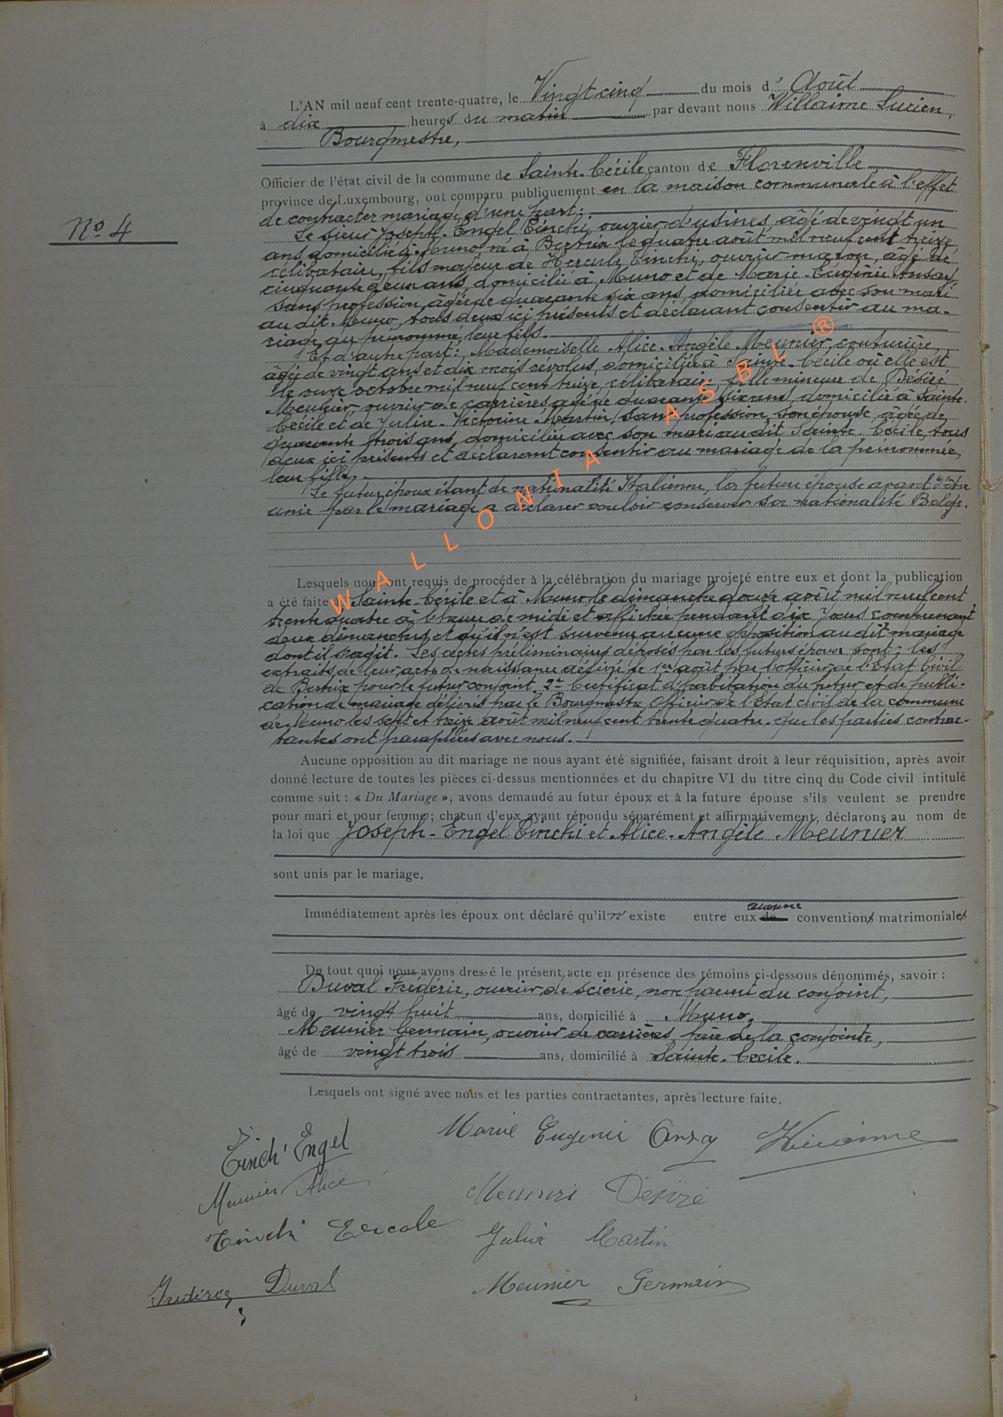 L'AN mil neuf cent trente-quatre, le Vingt cinq du mois d' Août
à dix heures du matin par devant nous Willaime Lucien,
Bourgmestre,
Officier de l'état civil de la commune de Sainte-Cécile canton de Florenville
province de Luxembourg, ont comparu publiquement en la maison communale à l'effet
de contracter mariage, d'une part:
No 4
Le sieur Joseph-Engel Tinchi, ouvrier d'usines, âgé de vingt un
ans domicilié à Muno né à Bertrix le quatre août mil neuf cent treize
célibataire, fils majeur de Hercule Tinchi, ouvrier maçon, âgé de
cinquante deux ans, domicilié à Muno et de Marie-Eugénie Ansay,
sans profession, âgée de quarante six ans, domiciliée avec son mari
au dit Muno, tous deux ici présents et déclarant consentir au ma-
riage du prénommé, leur fils.
Et d'autre part: Mademoiselle Alice-Angèle Meunier, couturière,
âgée de vingt ans et dix mois révolus, domiciliée à Sainte-Cécile où elle est
le onze octobre mil neuf cent treize, célibataire, fille mineure de Désiré
Meunier, ouvrier de carrières âgé de quarante six ans, domicilié à Sainte-
Cécile et de Julie-Victorine Martin, sans profession, son épouse, âgée de
quarante trois ans, domiciliée avec son mari au dit Sainte-Cécile, tous
deux ici présents et déclarant consentir au mariage de la prénommée,
leur fille.
Le futur époux étant de nationalité Italienne, la future épouse avant d'être
unie par le mariage a déclaré vouloir conserver sa nationalité Belge.
WALLONIA ASBL ®
Lesquels nous ont requis de procéder à la célébration du mariage projeté entre eux et dont la publication
a été faite à Sainte-Cécile et à Muno le dimanche douze août mil neuf cent
trente quatre à l'heure de midi et affichée pendant dix jours comprenant
deux dimanches et qu'il n'est survenu aucune opposition au dit mariage
dont il s'agit. Les actes préliminaires déposés par les futurs époux sont: les
extraits de leur acte de naissance délivré le 1er août par l'officier de l'Etat Civil
de Bertrix pour le futur conjoint, 2° Certificat d'habitation du futur et de publi-
cation de mariage délivrés par le Bourgmestre Officier de l'Etat civil de la commune
de Muno les sept et treize août mil neuf cent trente quatre. que les parties contrac-
tantes ont paraphées avec nous.
Aucune opposition au dit mariage ne nous ayant été signifiée, faisant droit à leur réquisition, après avoir
donné lecture de toutes les pièces ci-dessus mentionnées et du chapitre VI du titre cinq du Code civil intitulé
comme suit : « Du Mariage », avons demandé au futur époux et à la future épouse s'ils veulent se prendre
pour mari et pour femme; chacun d'eux ayant répondu séparément et affirmativement, déclarons au nom de
la loi que Joseph-Engel Tinchi et Alice-Angèle Meunier
sont unis par le mariage.
Immédiatement après les époux ont déclaré qu'il n'existe entre eux aucune conventions matrimoniales
De tout quoi nous avons dressé le présent acte en présence des témoins ci-dessous dénommés, savoir :
Duval Frédéric, ouvrier de scierie, non parent du conjoint,
âgé de vingt huit ans, domicilié à Muno,
Meunier Germain, ouvrier de carrières, frère de la conjointe,
âgé de vingt trois ans, domicilié à Sainte-Cécile.
Lesquels ont signé avec nous et les parties contractantes, après lecture faite.
Tinchi Engel Marie Eugénie Ansay Willaime
Meunier Alice Meunier Désiré
Tinchi Ercole Julia Martin
Duval Meunier Germain